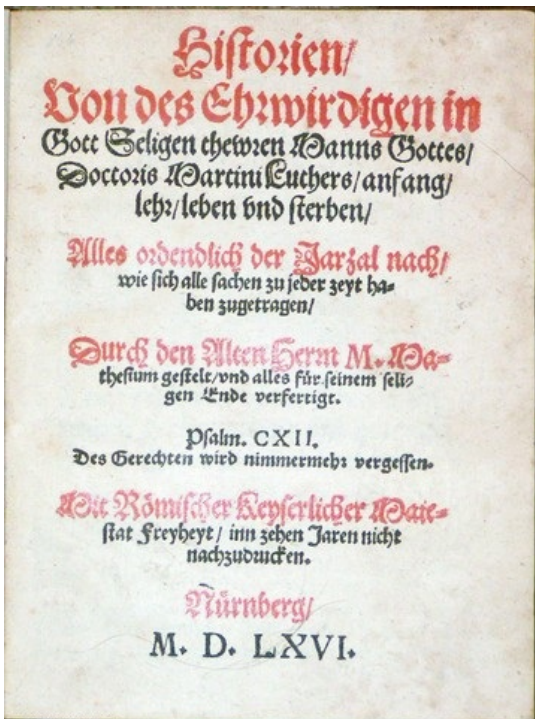 Historien/
Von des Ehrwirdigen in
Gott Seligen thewren Manns Gottes/
Doctoris Martini Luthers/ anfang/
lehr/ leben vnd sterben/
Alles ordendlich der Jarzal nach/
wie sich alle sachen zu jeder zeyt ha-
ben zugetragen/
Durch den Alten Herrn M. Ma-
thesium gestelt/ vnd alles für seinem seli-
gen Ende verfertigt.
Psalm. CXII.
Des Gerechten wird nimmermehr vergessen.
Mit Römischer Keyserlicher Maie-
stat Freyheyt/ inn zehen Jaren nicht
nachzudrucken.
Nürnberg/
M. D. LXVI.